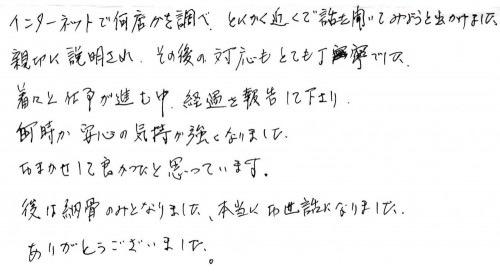 インターネットで何店かを調べ、とにかく近くで話を聞いてみようと出かけました
親切に説明され、その後の対応もとても丁寧でした。
着々と仕事が進む中、経過を報告して下さり、
何時か安心の気持が強くなりました。
おまかせして良かったと思っています。
後は納骨のみとなりました、本当にお世話になりました。
ありがとうございました。